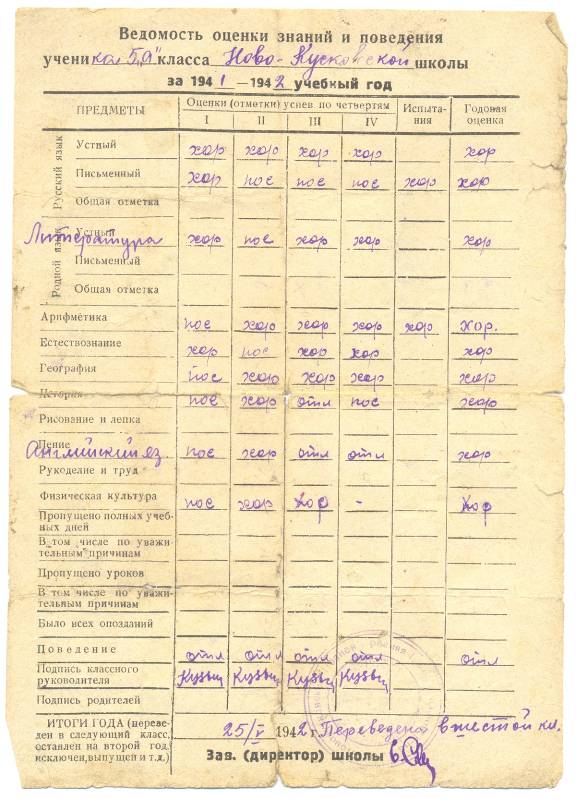 Ведомость оценки знаний и поведения
ученика 5„а" класса Ново-Кусковской школы
за 1941—1942 учебный год
ПРЕДМЕТЫ Оценки (отметки) успев по четвертям Испыта-ния Годовая оценка
I II III IV
Русский язык
Устный хор хор хор хор хор
Письменный хор пос пос пос хор хор
Общая отметка
Родной язык
Устный
Литература хор пос хор хор хор
Письменный
Общая отметка
Арифметика пос хор хор хор хор хор.
Естествознание хор пос хор хор хор
География пос хор хор хор хор
История пос хор отл пос хор
Рисование и лепка
Пение
Английский яз. пос хор отл отл хор
Рукоделие и труд
Физическая культура пос хор хор - хор
Пропущено полных учеб-
ных дней
В том числе по уважи-
тельным причинам
Пропущено уроков
В том числе по уважи-
тельным причинам
Было всех опозданий
Поведение отл отл отл отл отл
Подпись классного
руководителя
Подпись родителей
ИТОГИ ГОДА (переве-
ден в следующий класс,
оставлен на второй год,
исключен, выпущен и т.д.)
25/V 1942 г. Переведена в шестой кл.
Зав. (директор) школы